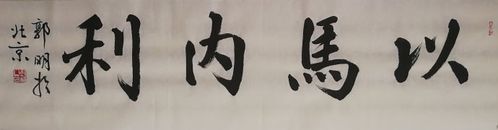 以馬内利
郭明於
北京